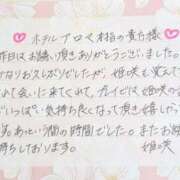 ホテルプロペ本指の貴方様
昨日はお誘い頂きありがとうございました。
かなりお久しぶりでしたが、姫咲も覚えて
て会いに来てくれて、ガイビは姫咲
い気持ち良くなって頂き嬉しかっ
あという間の時間でした。またお
待ちしております。 姫咲